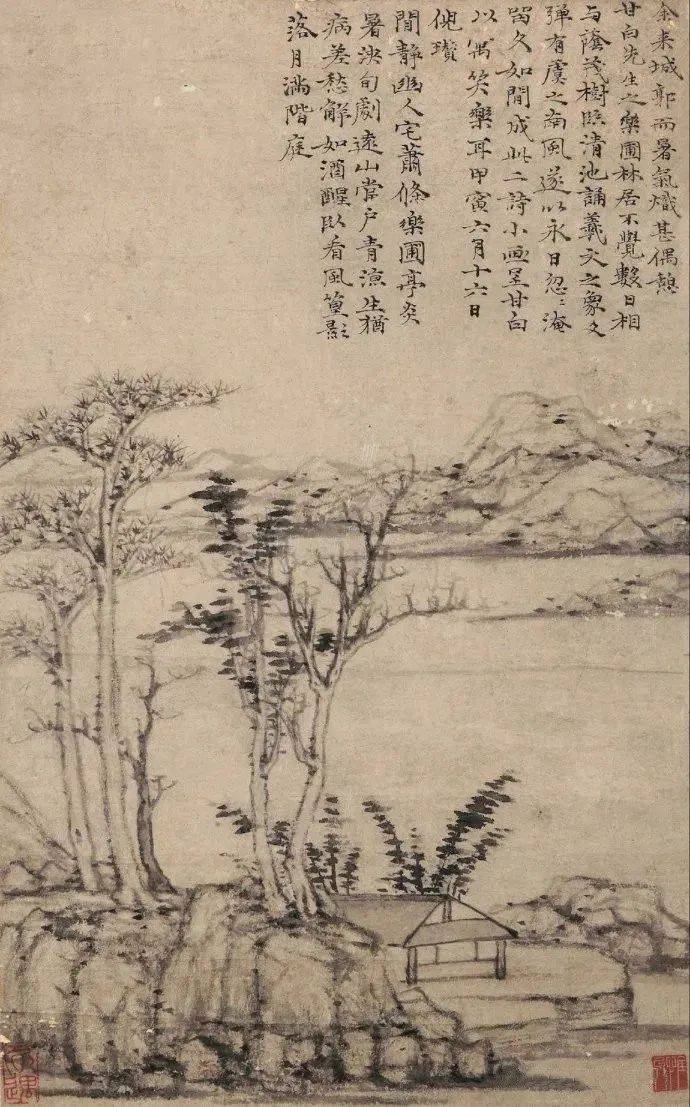 余来城郭而暑氣熾甚偶憩
甘白先生之樂圃林居不覺數日相
与蔭茂樹臨清池誦羲文之象爻
弹有虞之南風遂以永日忽〻淹
留久如閒成此二詩小画呈甘白
以寓笑樂耳甲寅六月十六日
倪瓚
閒静幽人宅蕭條樂圃亭炎
暑浹旬劇遠山當户青涼生猶
病差愁解如酒醒臥看風篁影
落月滿階庭